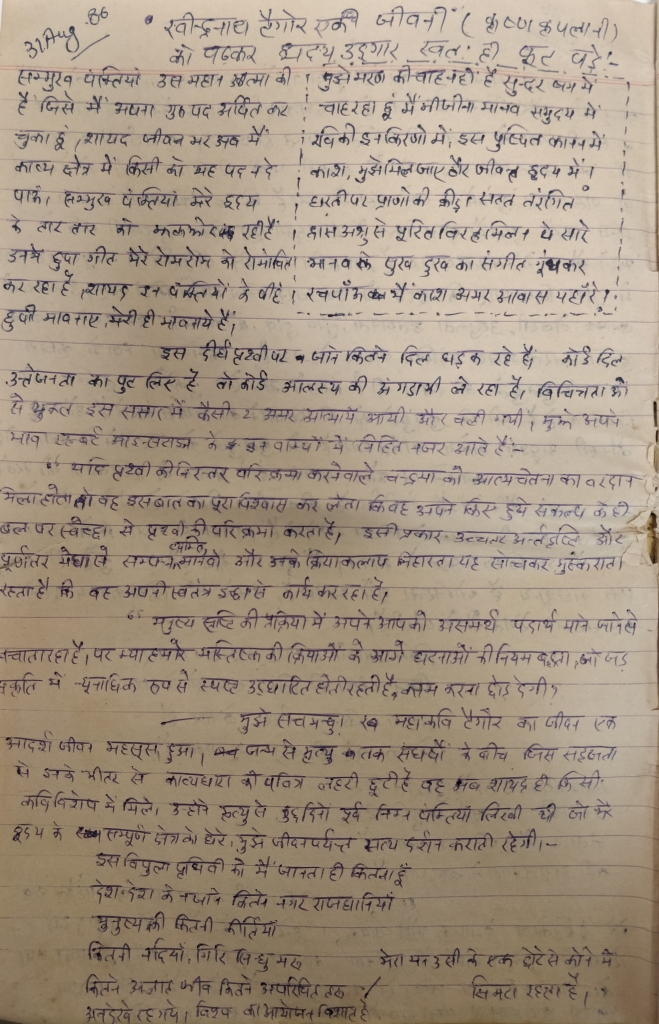 31 Aug 86
• रवीन्द्रनाथ टैगोर एक जीवनी ( कृष्ण कृपलानी )
को पढ़कर हृदय उद्गार स्वतः ही फूट पड़े:-
सम्मुख पंक्तियां उस महान आत्मा की
है जिसे मैं अपना गुरुपद अर्पित कर
चुका हूं, शायद जीवन भर अब मैं
काव्य क्षेत्र में किसी को यह पद न दे
पाऊं। सम्मुख पंक्तियां मेरे हृदय
के तार तार को झकझोर रही हैं
उनके छुपा गीत मेरे रोमरोम को रोमांचित
कर रहा है, शायद इन पंक्तियों के पीछे
छुपी भावनाए मेरी ही भावनाये हैं,
मुझे मरण की चाह नहीं है सुन्दर जग में
चाह रहा हूं मैं भी जीना मानव समुदय में
रवि की इन किरणों में, इस पुष्पित कानन में
काश, मुझे मिल जाए ठौर जीवन्त हृदय में।
धरती पर प्राणों की क्रीड़ा सतत तरंगित
हास अश्रु से पूरित विरह मिलन ये सारे
मानव के सुख दुख का संगीत गूंथकर
रच पाऊं मैं काश अमर आवास यहाँ रे!
इस दीर्घ पृथ्वी पर न जाने कितने दिल धड़क रहे हैं, कोई दिल
उत्तेजनता का पुट लिए है तो कोई आलस्य की अंगडायी ले रहा है, विचित्रता
से युक्त इस संसार में कैसी २ अमर आत्मायें आयी और चली गयी, मुझे अपने
भाव एल्बर्ट आइन्सटाइन के इन वाक्यों में निहित नजर आते हैं:-
“ यदि पृथ्वी की निरन्तर परिक्रमा करने वाले चन्द्रमा को आत्मचेतना का वरदान
मिला होता तो वह इस बात का पूरा विश्वास कर लेता कि वह अपने किए हुये संकल्प के ही
बल पर स्वेच्छा से पृथ्वी की परिक्रमा करता है, इसी प्रकार उच्चतर अर्न्तदृष्टि और
पूर्णतर मेधा से सम्पन्न व्यक्ति मानवों और उनके क्रियाकलाप निहारता यह सोचकर मुस्कराता
रहता है कि वह अपनी स्वतंत्र इच्छा से कार्य कर रहा है,
“ मनुष्य सृष्टि की प्रक्रिया में अपने आपको असमर्थ पदार्थ माने जाने से
बचाता रहा है, पर क्या हमारे मस्तिष्क की क्रियाओं के आगे घटनाओं की नियम बद्धता, जो जड़
प्रकृति में न्यूनाधिक रूप से स्पष्ट उद्घाटित होती रहती है, काम करना छोड़ देगी?
मुझे सचमुच महाकवि टैगोर का जीवन एक
आदर्श जीवन महसूस हुआ, जन्म से मृत्यु तक संघर्षों के बीच जिस सहजता
से उनके भीतर से काव्यधारा की पवित्र लहरी छूटी है वह अब शायद ही किसी
कवि विशेष में मिले, उन्होंने मृत्यु से कुछ दिनों पूर्व निम्न पंक्तियां लिखी थी जो मेरे
हृदय के सम्पूर्ण क्षेत्र को घेरे, मुझे जीवनपर्यन्त सत्य दर्शन कराती रहेगी।-
इस विपुला पृथिवी को मैं जानता ही कितना हूँ
देश-देश के न जाने कितने नगर राजधानियाँ
मनुष्य की कितनी कीर्तियाँ
कितनी नदियाँ, गिरि सिन्धु मरु
कितने अज्ञात जीव कितने अपरिचित तरु
अनदेखे रह गये। विश्व का आयोजन विशाल है
मेरा मन उसी के एक छोटे से कोने में
सिमटा रहता है,